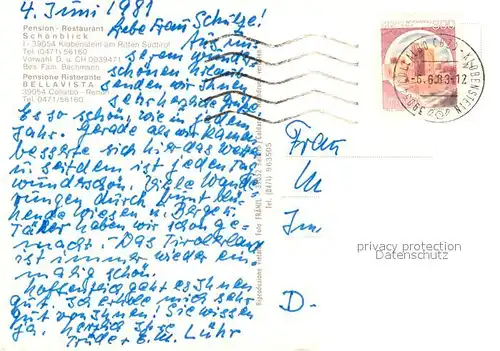 4. Juni 1981
Pension - Restaurant
Schönblick
I - 39054 Klobenstein am Ritten Südtirol
Tel. (0471) 56160
Vorwahl D. u. CH 0039471
Bes. Fam. Bachmann
Pensione Ristorante
BELLAVISTA
39054 Collalbo - Renon
Tel. 0471/56160
Liebe Frau Schulze!
Aus un-
serem wunder-
schönen Urlaub
senden wir Ihnen
sehr herzliche Grüße.
Es so schön, wie in dem
Jahr. Gerade als wir kamen
besserte sich hier das Wetter
u. seitdem ist jeden Tag
wunderschön. Viele Wande-
rungen durch bunt blü-
hende Wiesen u. Berge u.
Täler haben wir schon ge-
macht. - Das Tirolerland
ist immer wieder ein-
malig schön.
Hoffentlich geht es Ihnen
gut. Ich erhole mich sehr
gut von Ihnen! Sie wissen
ja. Herzlich Ihre
Trude + E. M. Lühr
Tel. (0471) 963505
KLOBENSTEIN
Frau
M
Im
D-
privacy protection
Datenschutz